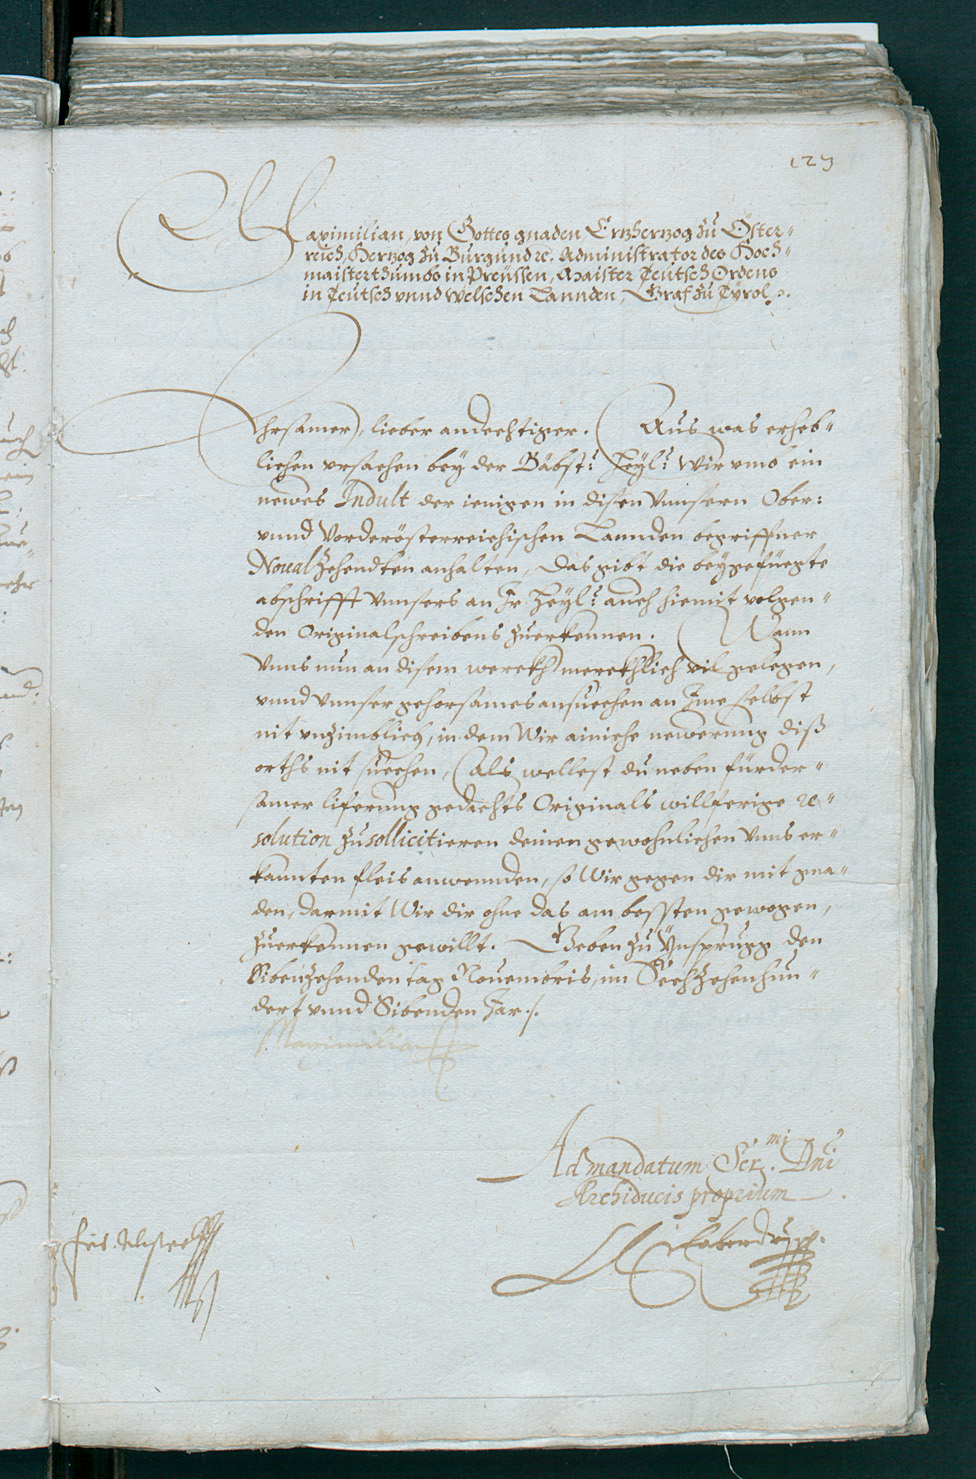 123
Maximilian, von Gottes gnaden Ertzhertzog zu Öster-
reich, Hertzog zu Burgund etc. Administrator des Hoch-
maisterthumbs in Preüssen, Maister Teutsch Ordens
in Teutsch vnnd Welschen Lannden, Graf zu Tÿrol.
Ehrsamer, lieber andechtiger. Aus was erheb-
lichen vrsachen bey der Bäbst: Heyl: Wir vmb ein
newes Indult der ienigen in disen Vnnsern Ober:
vnnd Vorderösterreichischen Lannden begriffner
Noualzehendten anhalten, Das gibt die beygefüegte
abschrifft Vnnsers an Ir Heyl: auch hiemit volgen-
den Originalschreibens zuerkennen. Wann
Vnns nun an disem werckh merckhlich vil gelegen,
vnnd Vnnser gehorsames ansuechen an Ime selbst
nit vnzimblich, in dem Wir ainiche newerung diß
orths nit suechen, Als wellest du neben fürder-
samer liferung gedachts Originals willferige re-
solution zu sollicitieren deinen gewohnlichen Vnns er-
kannten fleis anwennden, so Wir gegen dir mit gna-
den, darmit Wir dir ohne das am bessten gewogen,
zuerkennen gewillt. Geben zu Ynsprugg den
Sibenzehenden tag Nouembris, im Sechzehenhun-
dert vnnd Sibenden Jar.
Maximilian
Ad mandatum Ser.mi Dni
Archiducis proprium